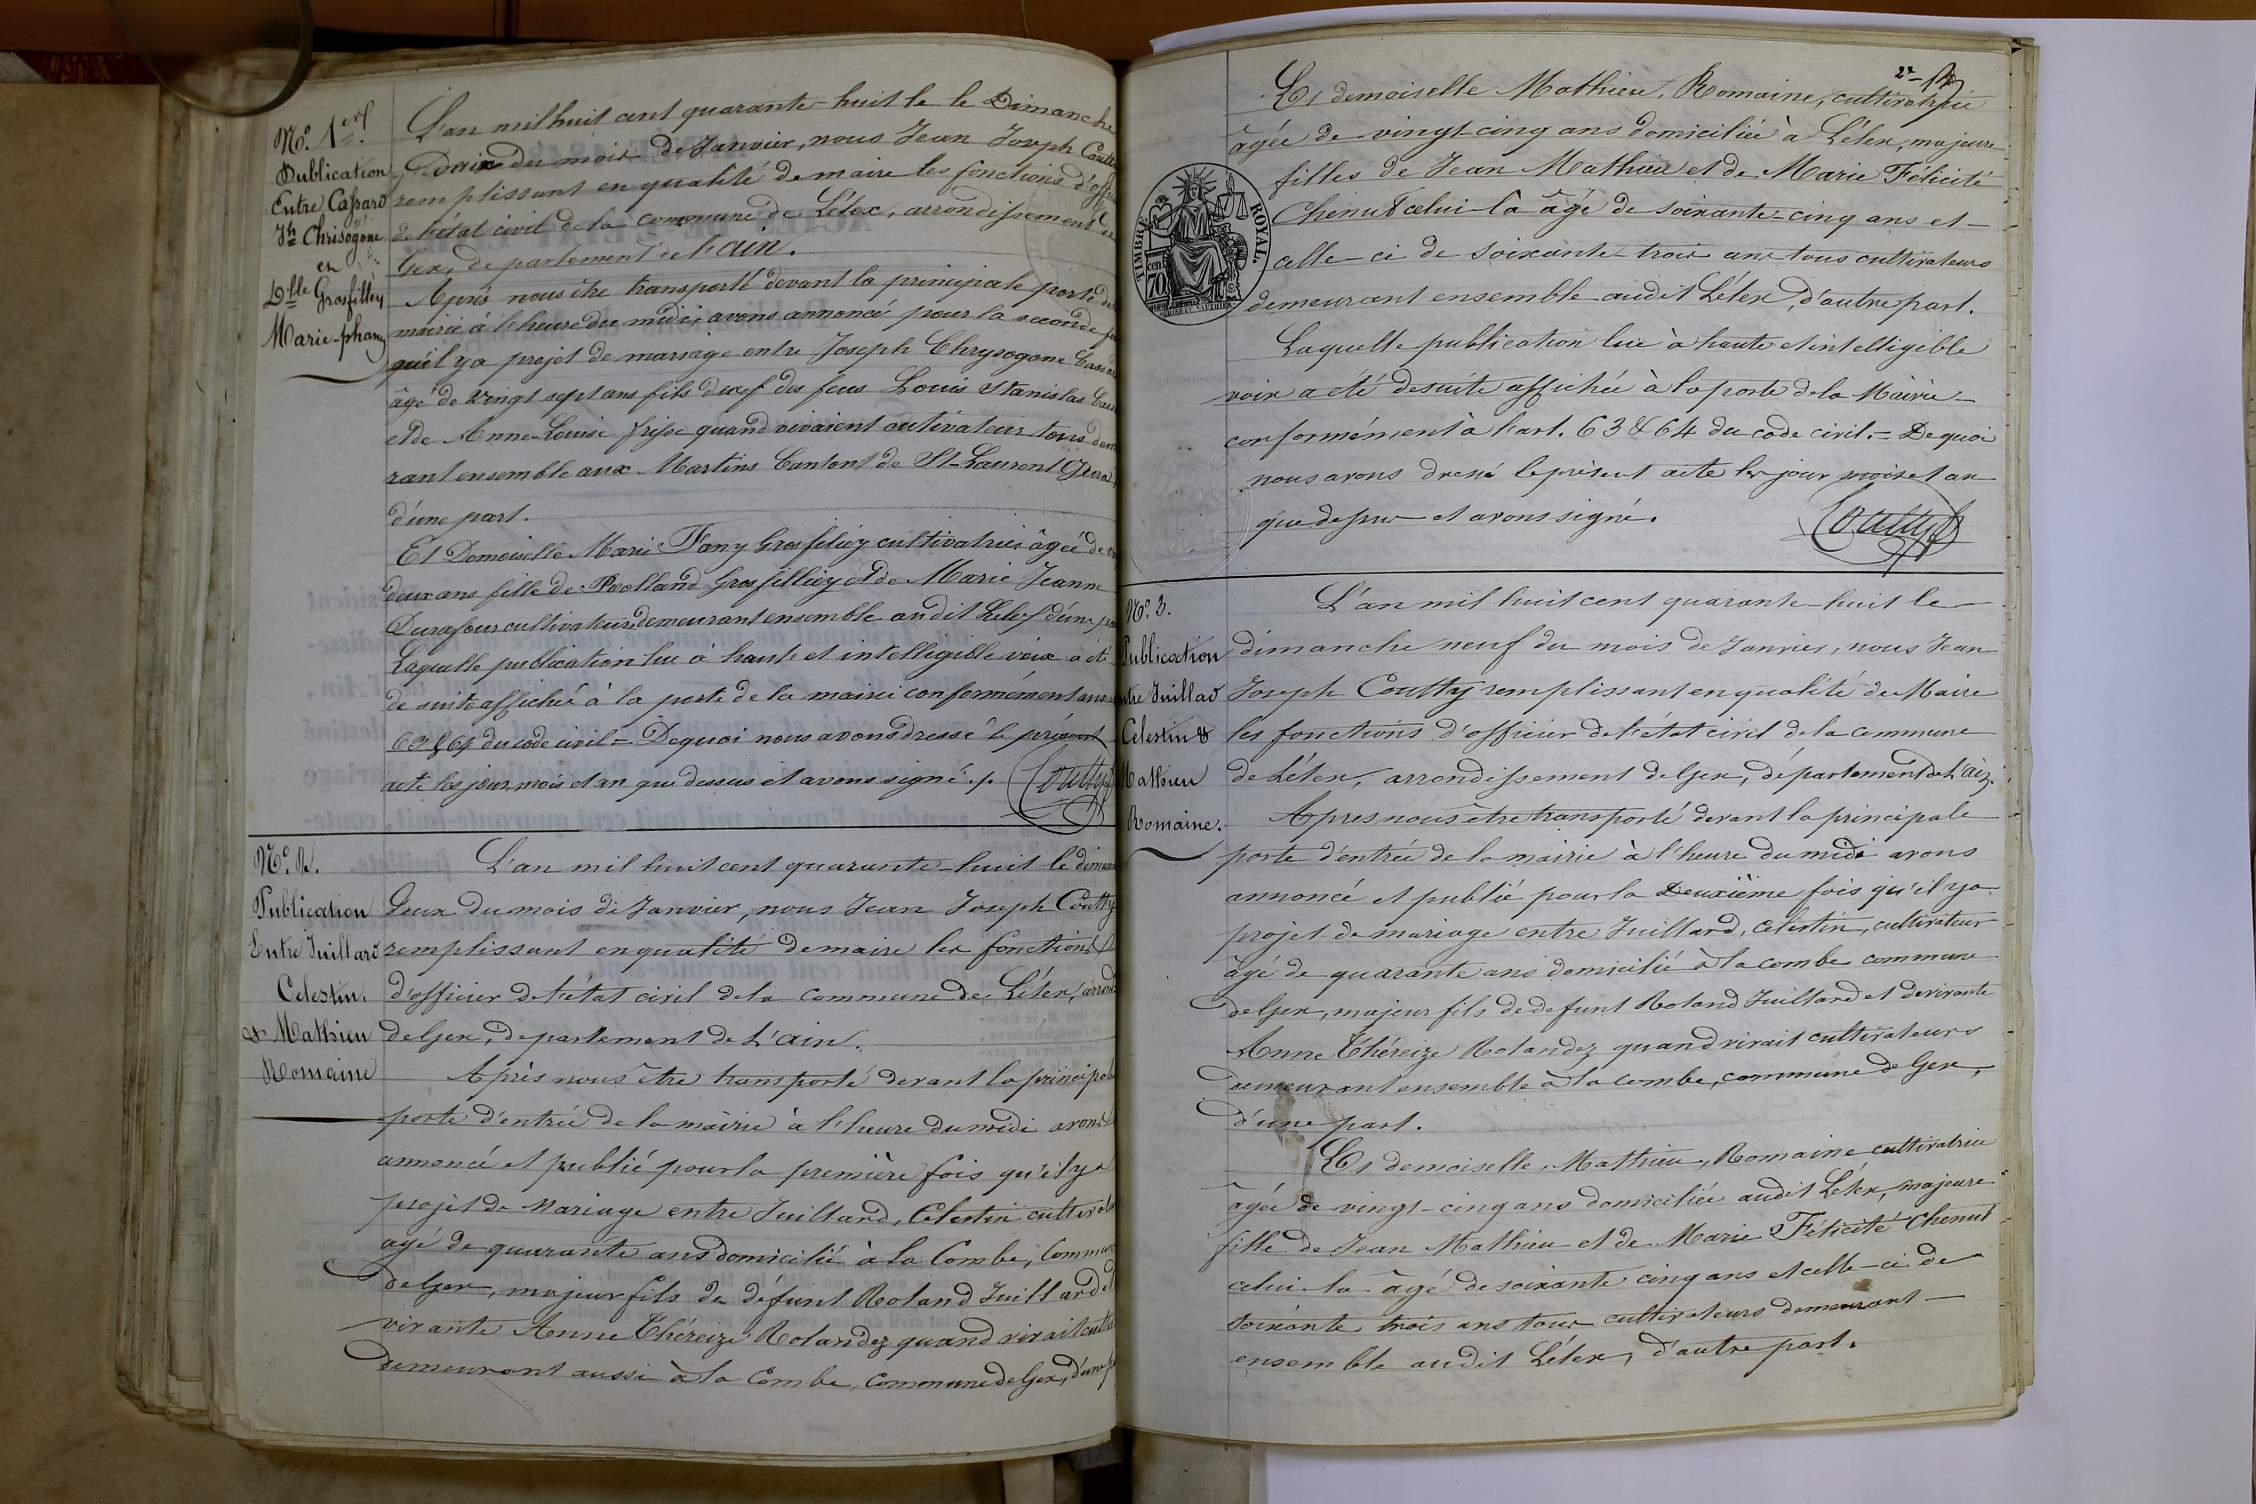 No. 1er.
Publication
Entre Cassard
Jh Chrisogone
et
Dlle Grosfilley
Marie-phany
L'an mil huit cent quarante-huit le le Dimanche
du mois de Janvier, nous Jean Joseph Coutty
remplissant en qualité de maire les fonctions d'officier
de l'état civil de la commune de Lélex, arrondissement de
Gex, departement de l'ain.
Après nous être transporté devant la principale porte de
mairie à l'heure du midi, avons annoncé pour la seconde fois
qu'il y a projet de mariage entre Joseph Chrysogone Cassard
âgé de vingt sept ans fils des feus Louis Stanislas
et de Anne-Louise quand vivaient cutivateurs tous demeu
rant ensemble aux Martins Canton de St-Laurent (Jura)
d'une part.
Et Demoiselle Marie Fany Grosfiliey cultivatrice âgée de
deux ans fille de Rolland Grosfilliey et de Marie Jeanne
Durafour cultivateurs demeurant ensemble audit Lelex d'une part
Laquelle publication lue à haute et intelligible voix a été
de suite affichée à la porte de la mairie conformément aux
63 & 64 du code civil = De quoi nous avons dressé le présent
acte les jour, mois et an que dessus et avons signé ./. Coutty
No. 2.
Publication
Entre Juillard
Celestin.
& Mathieu
Romaine
L'an mil huit cent quarante-huit le dimanche
deux du mois de Janvier, nous Jean Joseph Coutty
remplissant en qualité de maire les fonctions
d'officier de l'état civil de la commune de Lélex, arrond
de Gex, departement de L'ain.
Après nous être transporté devant la principale
porte d'entrée de la mairie à l'heure du midi avons
annoncé et publié pour la première fois qu'il y a
projet de mariage entre Juillard, Célestin cultivat
agé de quarante ans domicilié à la Combe, Commune
de Gex, majeur fils de défunt Roland Juillard et
vivante Anne Théreize Rolandez quand vivait
demeurant aussi à la Combe, commune de Gex, d'une p
Et demoiselle Mathieu, Romaine, cultivatrice
âgée de vingt-cinq ans domiciliée à Lélex, majeure
filles de Jean Mathieu et de Marie Félicité
Chenut celui-là âgé de soixante-cinq ans et
celle-ci de soixante-trois ans tous cultivateurs
demeurant ensemble audit Lélex, d'autre part.
TIMBRE ROYAL.
70 cen
Laquelle publication lue à haute et intelligible
voix a été desuite affichée à la porte de la Mairie
conformément à l'art. 63 & 64 du code civil. = De quoi
nous avons dressé le présent acte les jour mois et an
que dessus et avons signé.
Coutty
No. 3.
Publication
entre Juillard
Celestin &
Mathieu
Romaine.
L'an mil huit cent quarante-huit le
dimanche neuf du mois de Janvier, nous Jean
Joseph Coutty remplissant en qualité de Maire
les fonctions d'officier de l'état civil de la commune
de Lélex, arrondissement de Gex, département de L'ain.
Apres nous être transporté devant la principale
porte d'entrée de la mairie à l'heure du midi avons
annoncé et publié pour la Deuxième fois qu'il y a
projet de mariage entre Juillard, Celestin, cultivateur
âgé de quarante ans domicilié à la combe commune
de Gex, majeur fils de defunt Roland Juillard et de vivante
Anne Théreize Rolandez quand vivait cultivateurs
demeurant ensemble à la combe, commune de Gex,
d'une part.
Et demoiselle, Mathieu, Romaine cultivatrice
âgée de vingt-cinq ans domiciliée audit Lélex, majeure
fille de Jean Mathieu et de Marie Félicité Chenut
celui-là âgé de soixante cinq ans et celle-ci de
soixante trois ans tous cultivateurs demeurant
ensemble audit Lélex, d'autre part.